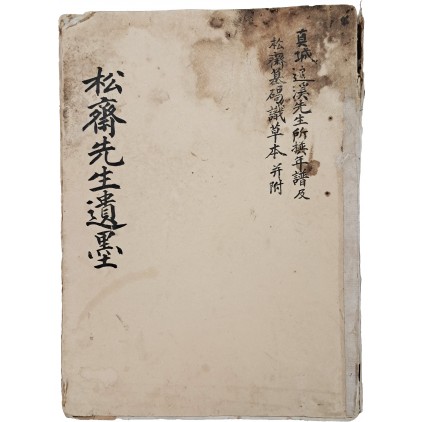 真城 先生所撰年譜及
松齋墓碣識草本并附
松齋先生遺墨